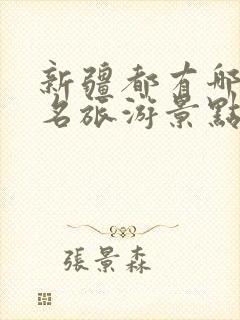 新疆都有哪
名旅游景點
張景森